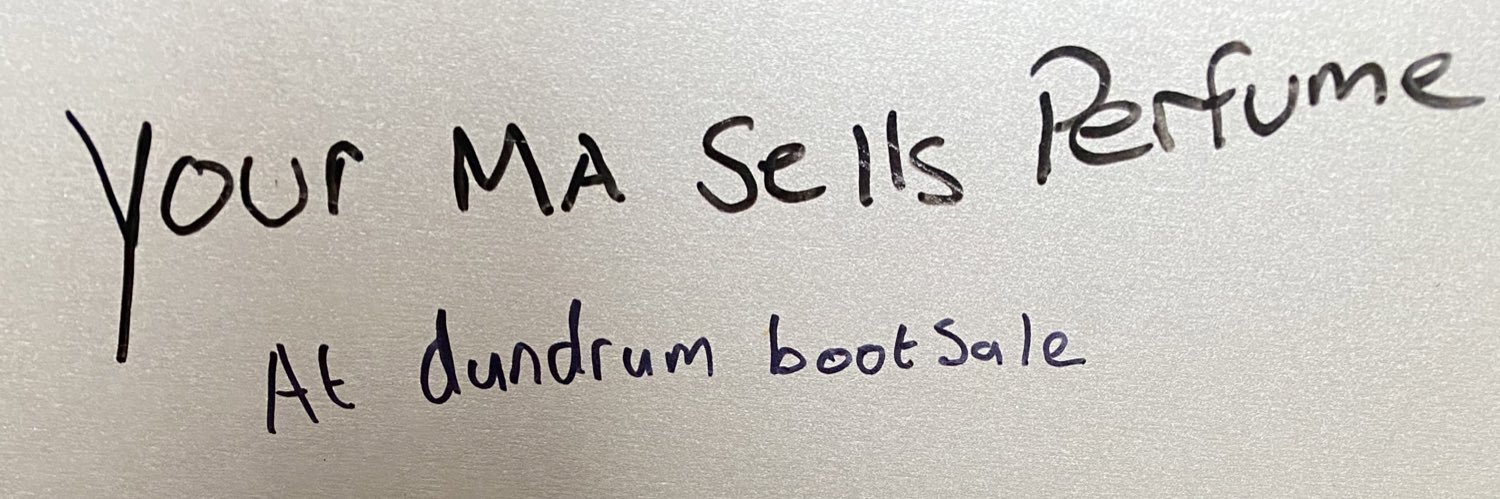 Your MA Sells Perfume
At dundrum bootSale